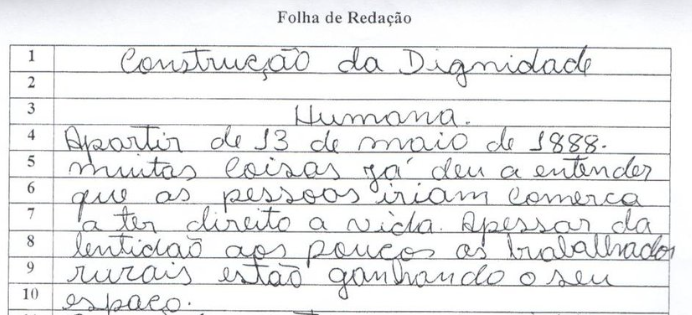 Folha de Redação
1 Construção da Dignidade
2
3 Humana.
4 Apartir de 13 de maio de 1888.
5 muitas coisas ya' deu a entender
6 que as pessoas iriam comerca
7 a ter direito a vida. Apessar da
8 lentidão aos poucos os trabalhador
9 rurais estão ganhando o seu
10 espaço.